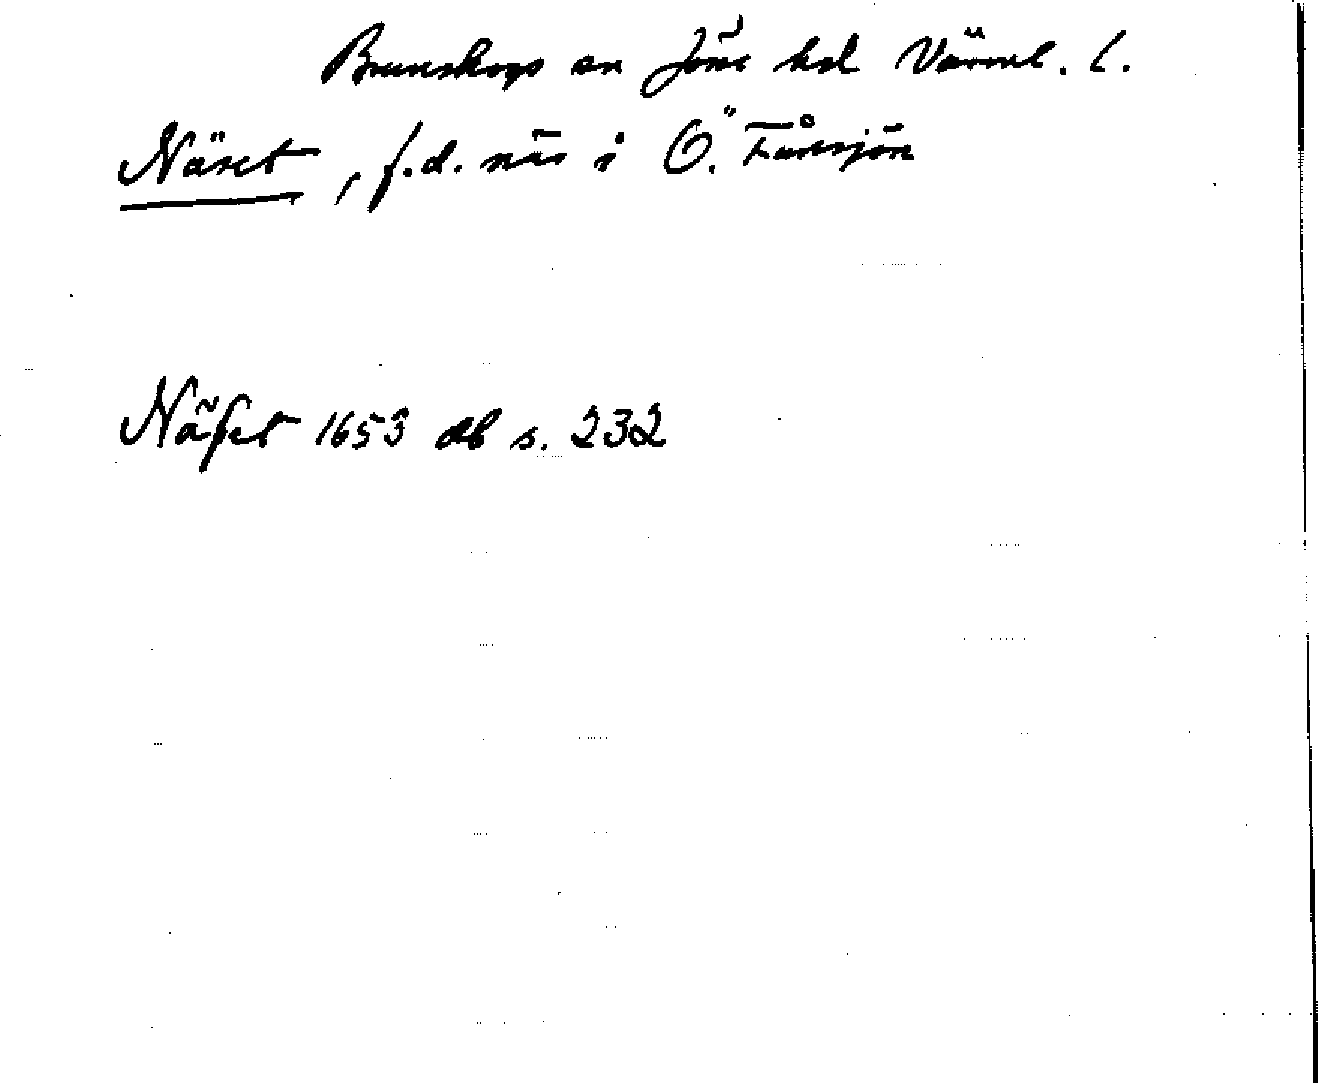 Brunskogs sn Jösse hd Värml. l.
Näset, f.d. näs i Ö. Fåresjön
Näset 1653 db s. 232